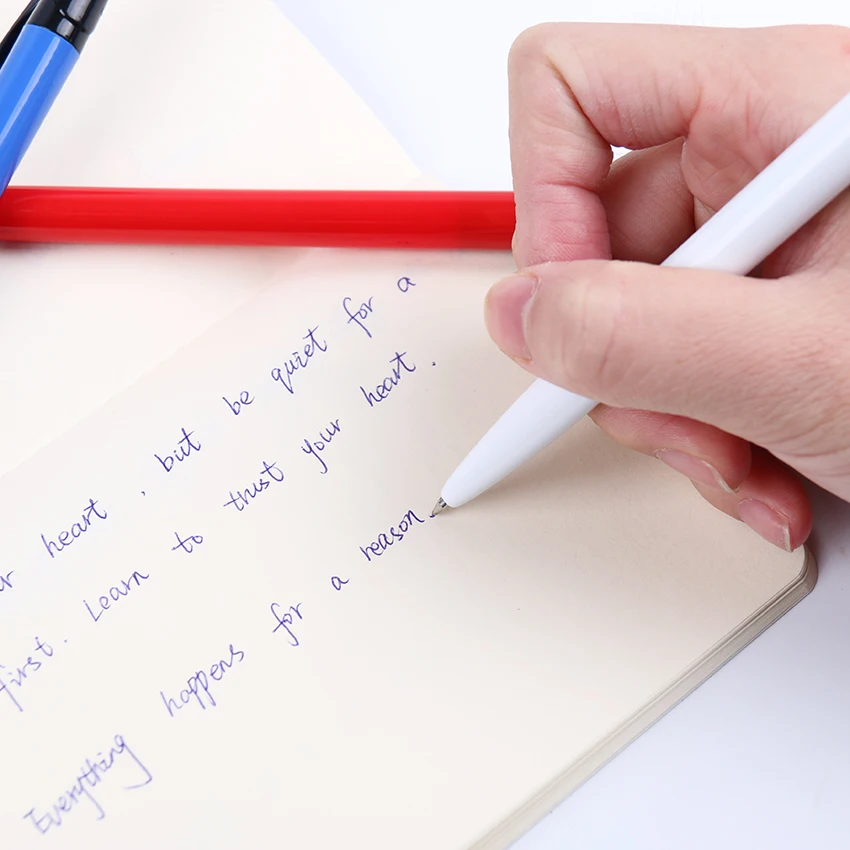 heart , but be quiet for a
first. Learn to trust your heart.
Everything happens for a reason